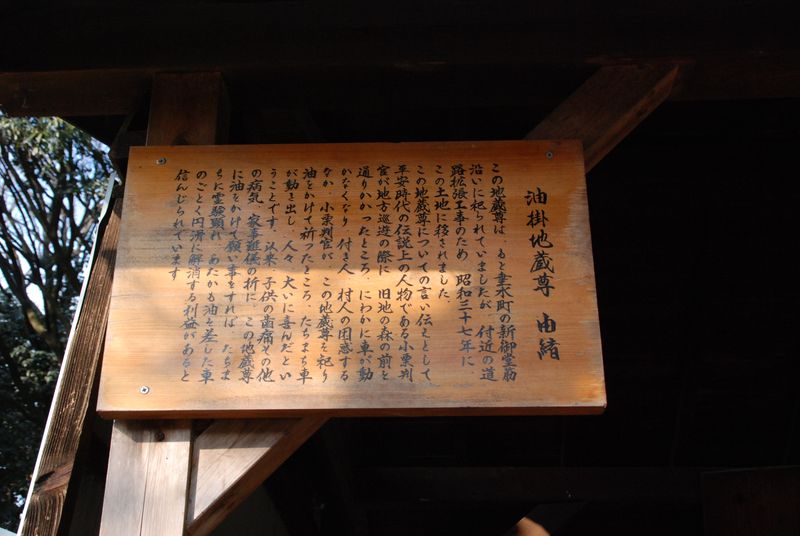 油掛地蔵尊　由緒
この地蔵尊は　もと垂水町の新御堂筋
沿いに祀られていましたが　付近の道
路拡張工事のため　昭和三十七年に
この土地に移されました
この地蔵尊についての言い伝えとして
平安時代の伝説上の人物である小栗判
官が地方巡遊の際に　旧地の森の前を
通りかかったところ　にわかに車が動
かなくなり　付き人　村人の困惑する
なか　小栗判官が　この地蔵尊を祀り
油をかけて祈ったところ　たちまち車
が動き出し　人々　大いに喜んだとい
うことです　以来　子供の歯痛その他
の病気　家事難儀の折に　この地蔵尊
に油をかけて願い事をすれば　たちま
ちに霊験顕れ　あたかも油を差した車
のごとく円滑に解消する利益があると
信んじられています